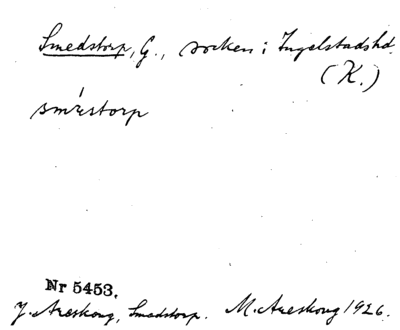 Smedstorp, G., socken i Ingelstads hd.
(K.)
smestorp
Nr 5453.
J. Areskoug, Smedstorp. M. Areskoug 1926.